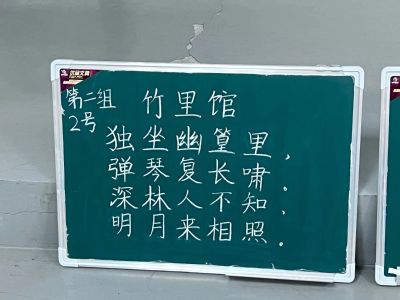 第二组
2号
竹里馆
独坐幽篁里，
弹琴复长啸。
深林人不知，
明月来相照。